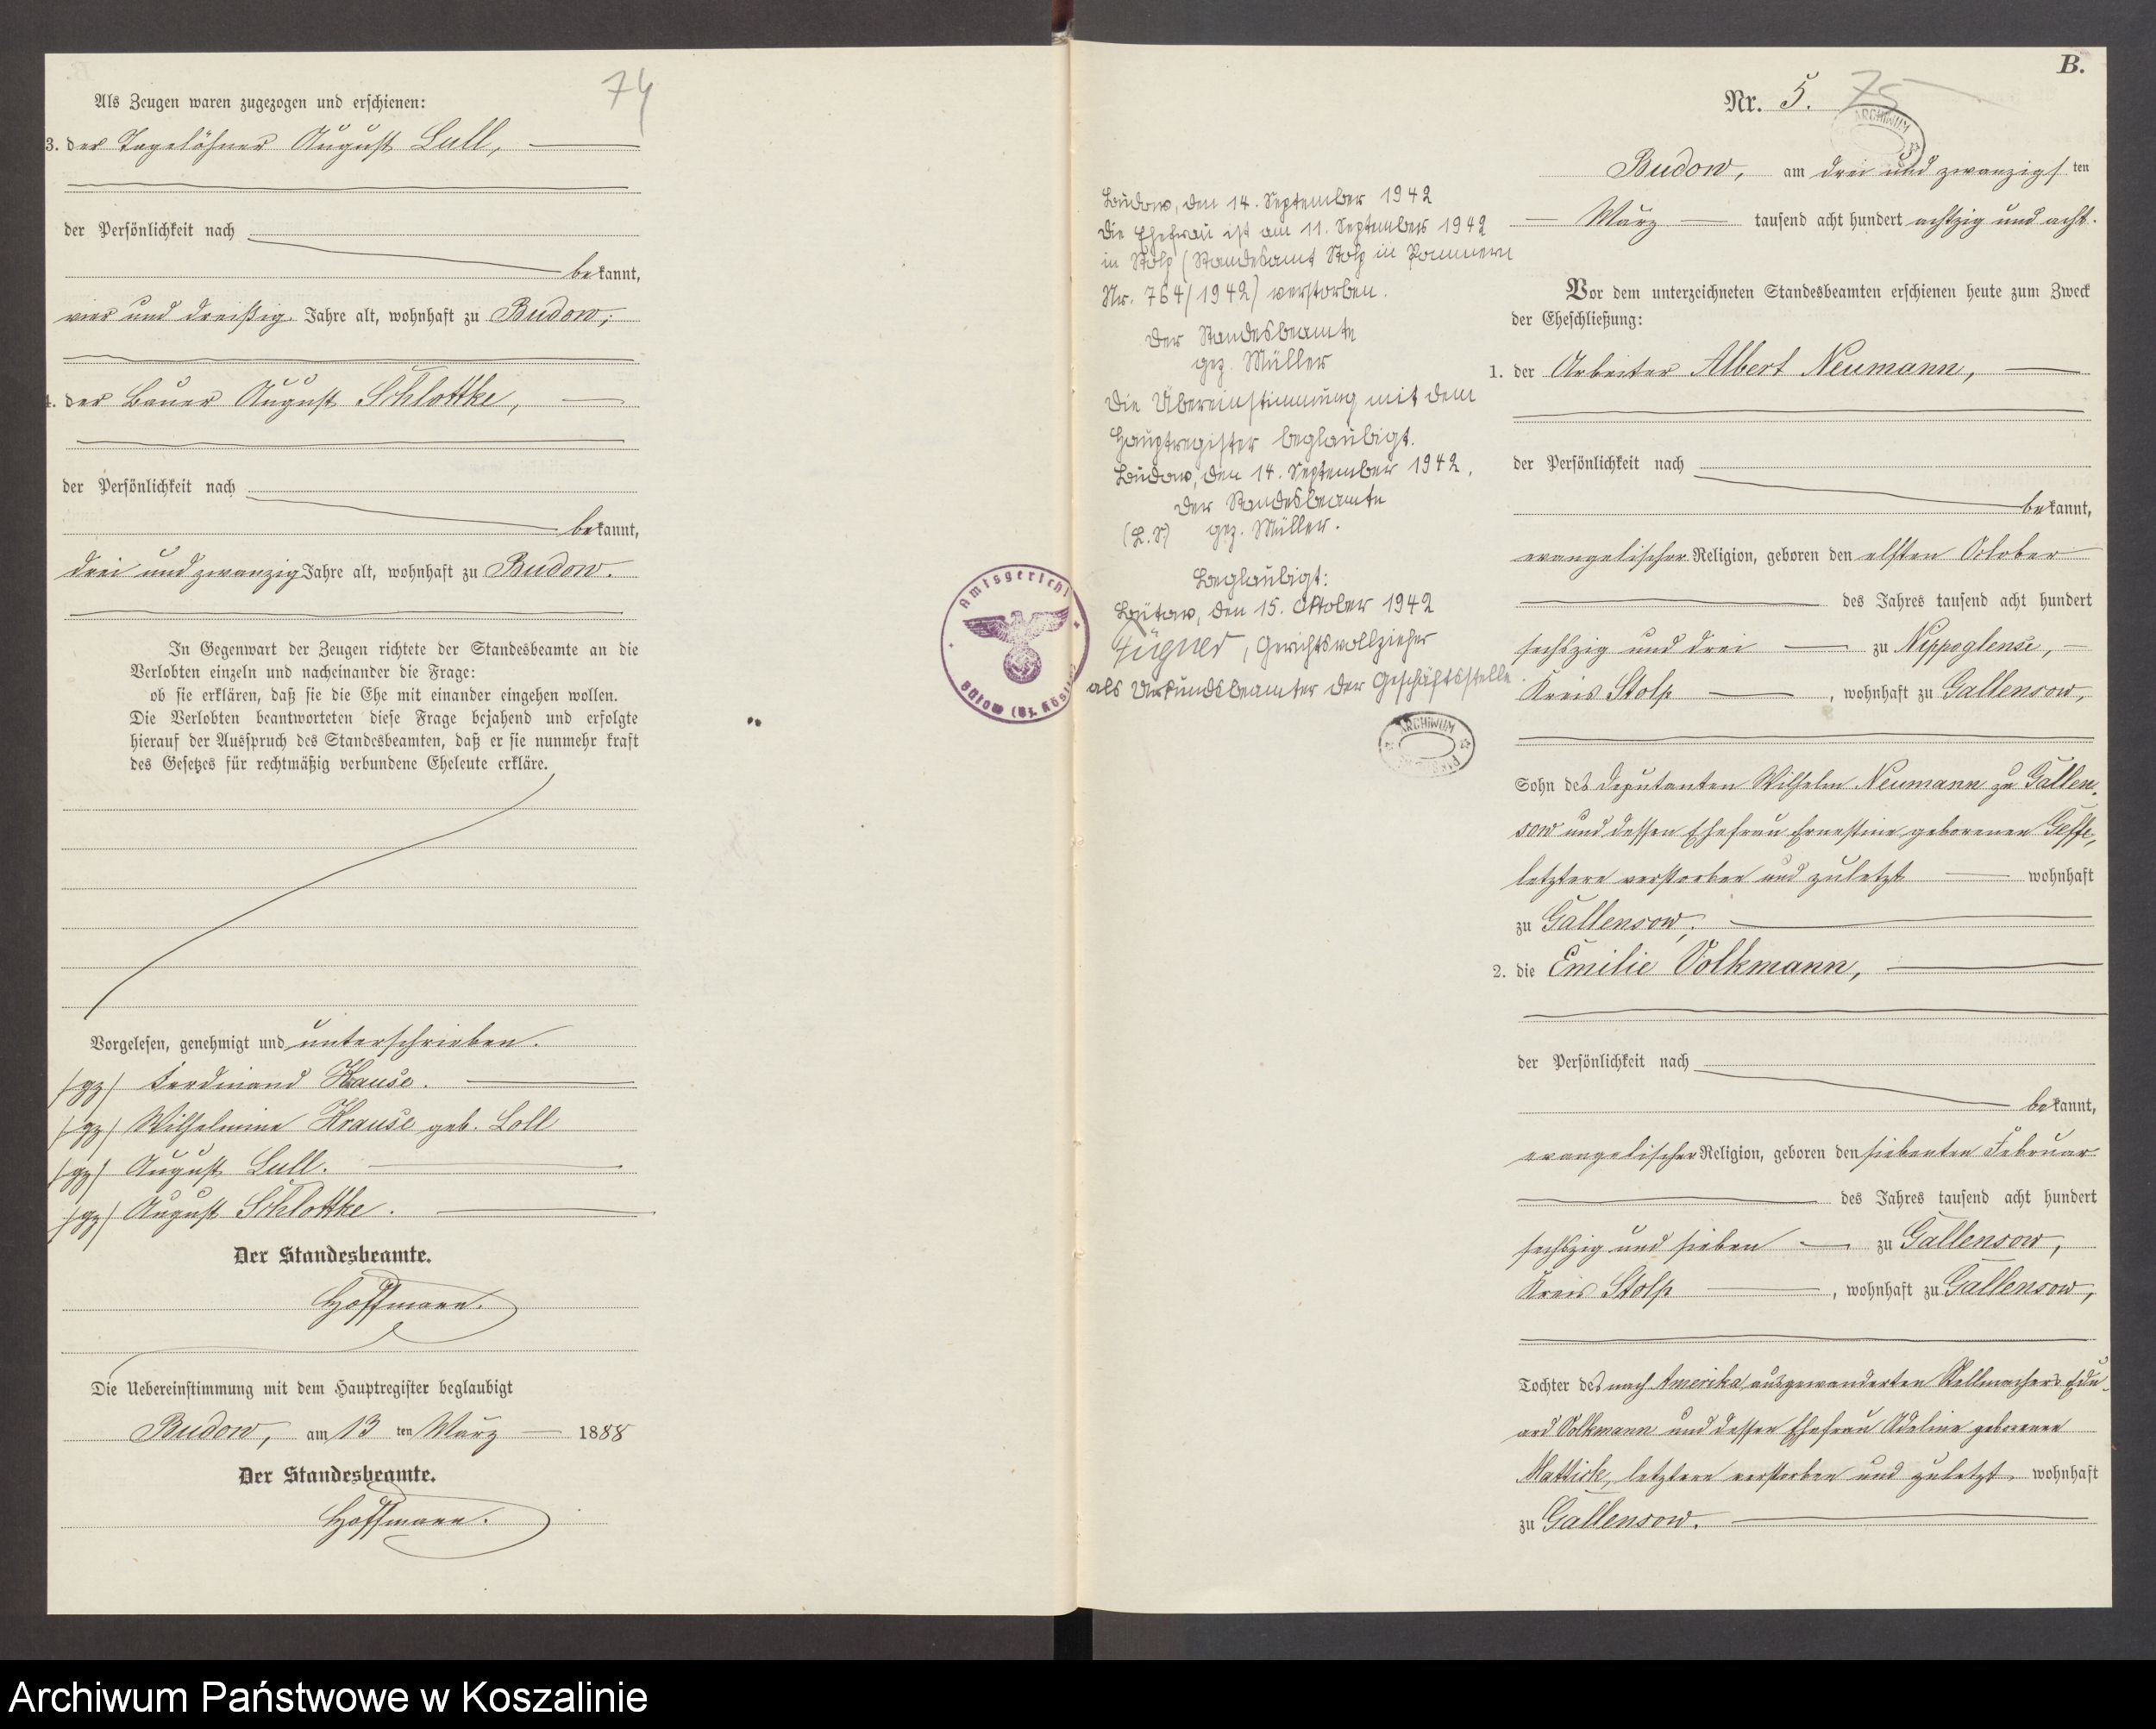 74
Als Zeugen waren zugezogen und erschienen:
3. der Tagelöhner August Lull,
der Persönlichkeit nach
bekannt,
vier und dreißig Jahre alt, wohnhaft zu Budow;
4. der Bauer August Schlottke,
der Persönlichkeit nach
bekannt,
drei und zwanzig Jahre alt, wohnhaft zu Budow.
In Gegenwart der Zeugen richtete der Standesbeamte an die
Verlobten einzeln und nacheinander die Frage:
ob sie erklären, daß sie die Ehe mit einander eingehen wollen.
Die Verlobten beantworteten diese Frage bejahend und erfolgte
hierauf der Ausspruch des Standesbeamten, daß er sie nunmehr kraft
des Gesetzes für rechtmäßig verbundene Eheleute erkläre.
Vorgelesen, genehmigt und unterschrieben.
/gz/ Ferdinand Krause.
/gz/ Wilhelmine Krause geb. Loll
/gz/ August Lull.
/gz/ August Schlottke.
Der Standesbeamte.
Hoffmann.
Die Uebereinstimmung mit dem Hauptregister beglaubigt
Budow, am 13 ten März 1888
Der Standesbeamte.
Hoffmann.
Budow, den 14. September 1942
Die Ehefrau ist am 11. September 1942
in Stolp (Standesamt Stolp in Pommern
Nr. 764/1942) verstorben.
Der Standesbeamte
gez. Müller
Die Übereinstimmung mit dem
Hauptregister beglaubigt.
Budow, den 14. September 1942.
Der Standesbeamte
(L.S) gez. Müller.
Beglaubigt:
Bütow, den 15. Oktober 1942
, Gerichtsvollzieher
als Urkundsbeamter der Geschäftsstelle.
Amtsgericht
Bütow (Bz. Kösl
ARCHIWUM
B.
Nr. 5. 75
ARCHIWUM
Budow, am drei und zwanzigs ten
März tausend acht hundert achtzig und acht.
Vor dem unterzeichneten Standesbeamten erschienen heute zum Zweck
der Eheschließung:
1. der Arbeiter Albert Neumann,
der Persönlichkeit nach
bekannt,
evangelischer Religion, geboren den elften October
des Jahres tausend acht hundert
sechszig und drei zu Nippoglense,
Kreis Stolp, wohnhaft zu Gallensow,
Sohn des Deputanten Wilhelm Neumann zu Gallen-
sow und dessen Ehefrau Ernestine geborenen
letztere verstorben und zuletzt wohnhaft
zu Gallensow;
2. die Emilie Volkmann,
der Persönlichkeit nach
bekannt,
evangelischer Religion, geboren den siebenten Februar
des Jahres tausend acht hundert
sechszig und sieben zu Gallensow,
Kreis Stolp, wohnhaft zu Gallensow,
Tochter des nach Amerika ausgewanderten Stellmachers Edu-
ard Volkmann und dessen Ehefrau Adeline geborenen
Mattick, letztere verstorben und zuletzt wohnhaft
zu Gallensow.
Archiwum Państwowe w Koszalinie